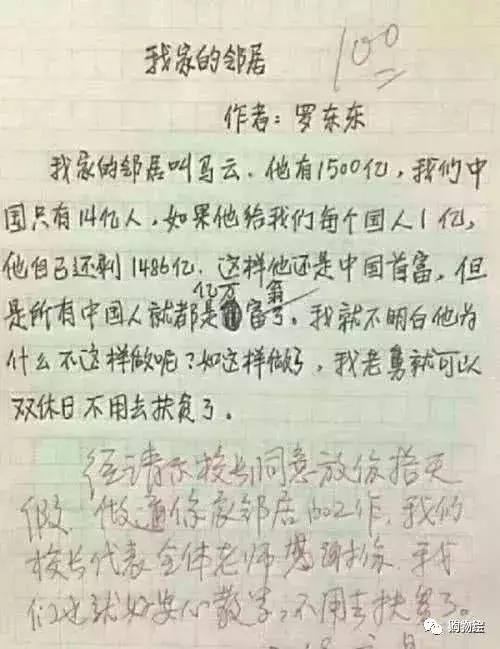 我家的邻居
100
作者：罗东东
我家的邻居叫马云．他有1500亿，我们中
国只有14亿人，如果他给我们每个国人1亿，
他自己还剩1486亿．这样他还是中国首富，但
亿万 翁
是所有中国人就都是富了。我就不明白他为
什么不这样做呢？如这样做了，我老舅就可以
双休日不用去扶贫了。
经请示校长同意放你拾天
假．做通你家邻居的工作．我们
校长代表全体老师感谢你．我
们也就好安心教学，不用去扶贫了。
购物绘